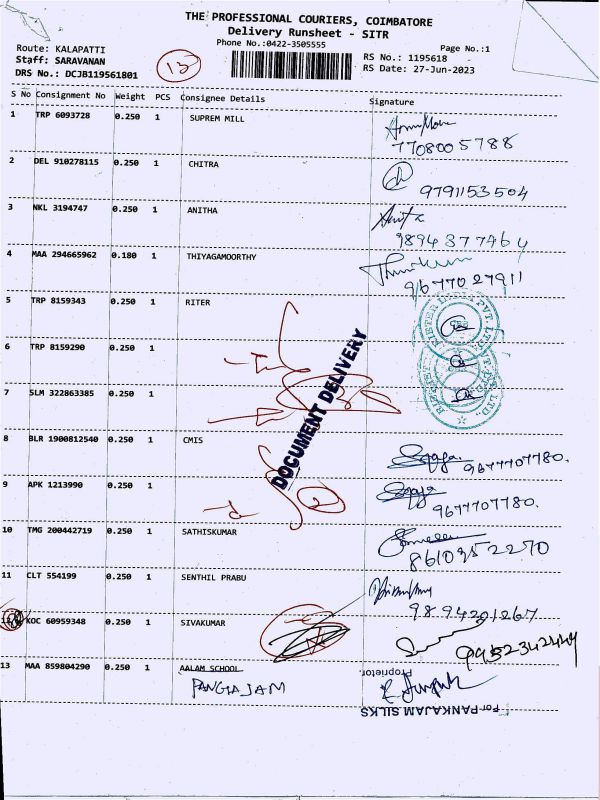 THE PROFESSIONAL COURIERS, COIMBATORE
Delivery Runsheet - SITR
Phone No.:0422-3505555
Page No.:1
Route: KALAPATTI
Staff: SARAVANAN
DRS No.: DCJB119561801
13
RS No.: 1195618
RS Date: 27-Jun-2023
S No Consignment No Weight PCS Consignee Details Signature
1 TRP 6093728 0.250 1 SUPREM MILL
7708005788
2 DEL 910278115 0.250 1 CHITRA
9791153504
3 NKL 3194747 0.250 1 ANITHA
Anita
9894377464
4 MAA 294665962 0.180 1 THIYAGAMOORTHY
9677027911
5 TRP 8159343 0.250 1 RITER
6 TRP 8159290 0.250 1
7 SLM 322863385 0.250 1
DOCUMENT DELIVERY
8 BLR 1900812540 0.250 1 CMIS
9677707780.
9 APK 1213990 0.250 1
9677707780.
2
10 TMG 200442719 0.250 1 SATHISKUMAR
8610952270
11 CLT 554199 0.250 1 SENTHIL PRABU
9894201267
12 KOC 60959348 0.250 1 SIVAKUMAR
13 MAA 859804290 0.250 1 AALAM SCHOOL
PANGAJAM
Proprietor
For PANKAJAM SILKS